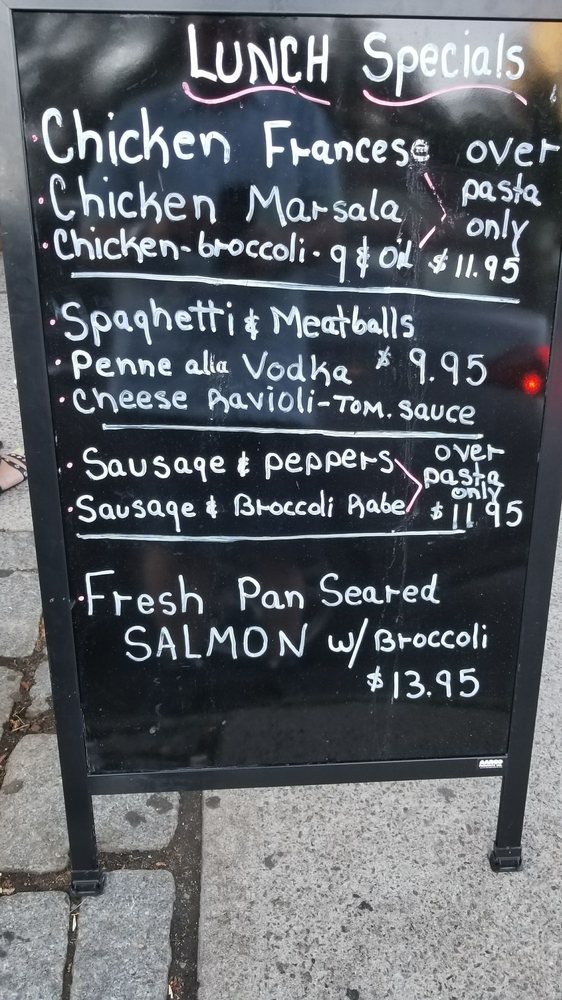 LUNCH Specials
Chicken Francese over
Chicken Marsala pasta
only
Chicken-broccoli-g & Oil $11.95
Spaghetti & Meatballs
Penne alla Vodka $9.95
Cheese Ravioli-TOM. SAUCE
Sausage & peppers over
pasta
only
Sausage & Broccoli Rabe $11.95
Fresh Pan Seared
SALMON w/ Broccoli
$13.95